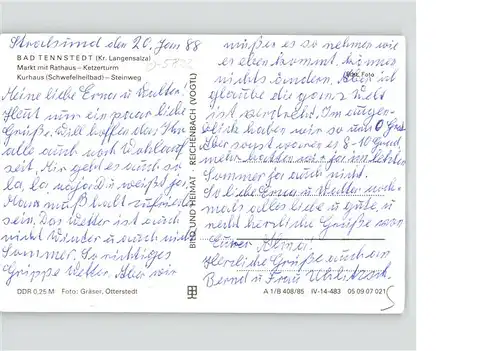 Stralsund den 20. Jan 88
BAD TENNSTEDT (Kr. Langensalza)
Markt mit Rathaus – Ketzerturm
Kurhaus (Schwefelheilbad) – Steinweg
Meine liebe Erna u Walter.
Heut nur ein paar liebe
Grüße. Will hoffen das Ihr
alle auch noch Wohlauf
seit. Mir geht es auch so
la, la, naja Du weißt ja
Mann muß halt zufrieden
sein. Das Wetter ist auch
nicht Winter u auch nicht
Sommer. So richtiges
Grippe Wetter. Aber wir
DDR 0,25 M Foto: Gräser, Otterstedt
BILD UND HEIMAT REICHENBACH (VOGTL)
müßen es so nehmen wie
es eben kommt. können
nichts ändern. Aber ich
Foto
glaube die ganze Welt
ist verdreht. Im augen-
blick haben wir so um 0 Grad
Aber sonst waren es 8-10 Grad,
mehr hatten wir im letzten
Sommer ja auch nicht.
So liebe Erna u Walter noch-
mals alles liebe u gute, u
recht herzliche Grüße von
Eurer
Herzliche Grüße auch an
Bernd u Frau
A 1/B 408/85 IV-14-483 05 09 07 021